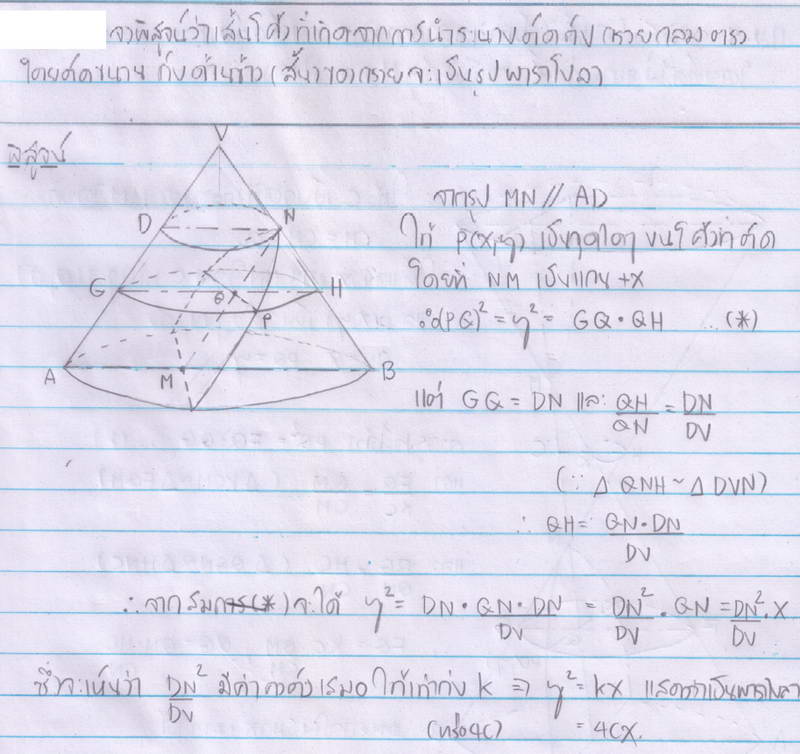 จงพิสูจน์ว่าเส้นโค้งที่เกิดจากการนำระนาบตัดตัวกรวยกลมตรง
โดยตัดขนานกับด้านข้าง (สัน) ของกรวยจะเป็นรูปพาราโบลา
พิสูจน์
V
D N
G Q H
P
A M B
จากรูป MN // AD
ให้ P(x,y) เป็นจุดใดๆ บนโค้งที่ตัด
โดยที่ NM เป็นแกน +x
∴ (PQ)² = y² = GQ·QH ...(*)
แต่ GQ = DN และ QH/QN = DN/DV
(∵ Δ QNH ~ Δ DVN)
∴ QH = QN·DN/DV
∴ จากสมการ(*) จะได้ y² = DN·QN·DN/DV = DN²/DV · QN = DN²/DV · x
ซึ่งจะเห็นว่า DN²/DV มีค่าคงตัวเสมอ ให้เท่ากับ k ⇒ y² = kx แสดงว่าเป็นพาราโบลา
(หรือ 4c) = 4cx.